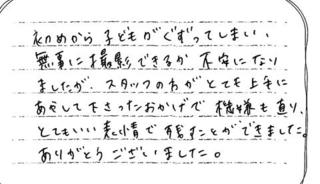 初めから子どもがぐずってしまい、
無事に撮影できるか不安になり
ましたが、スタッフの方がとても上手に
あやして下さったおかげで機嫌も直り、
とてもいい表情で残すことができました。
ありがとうございました。